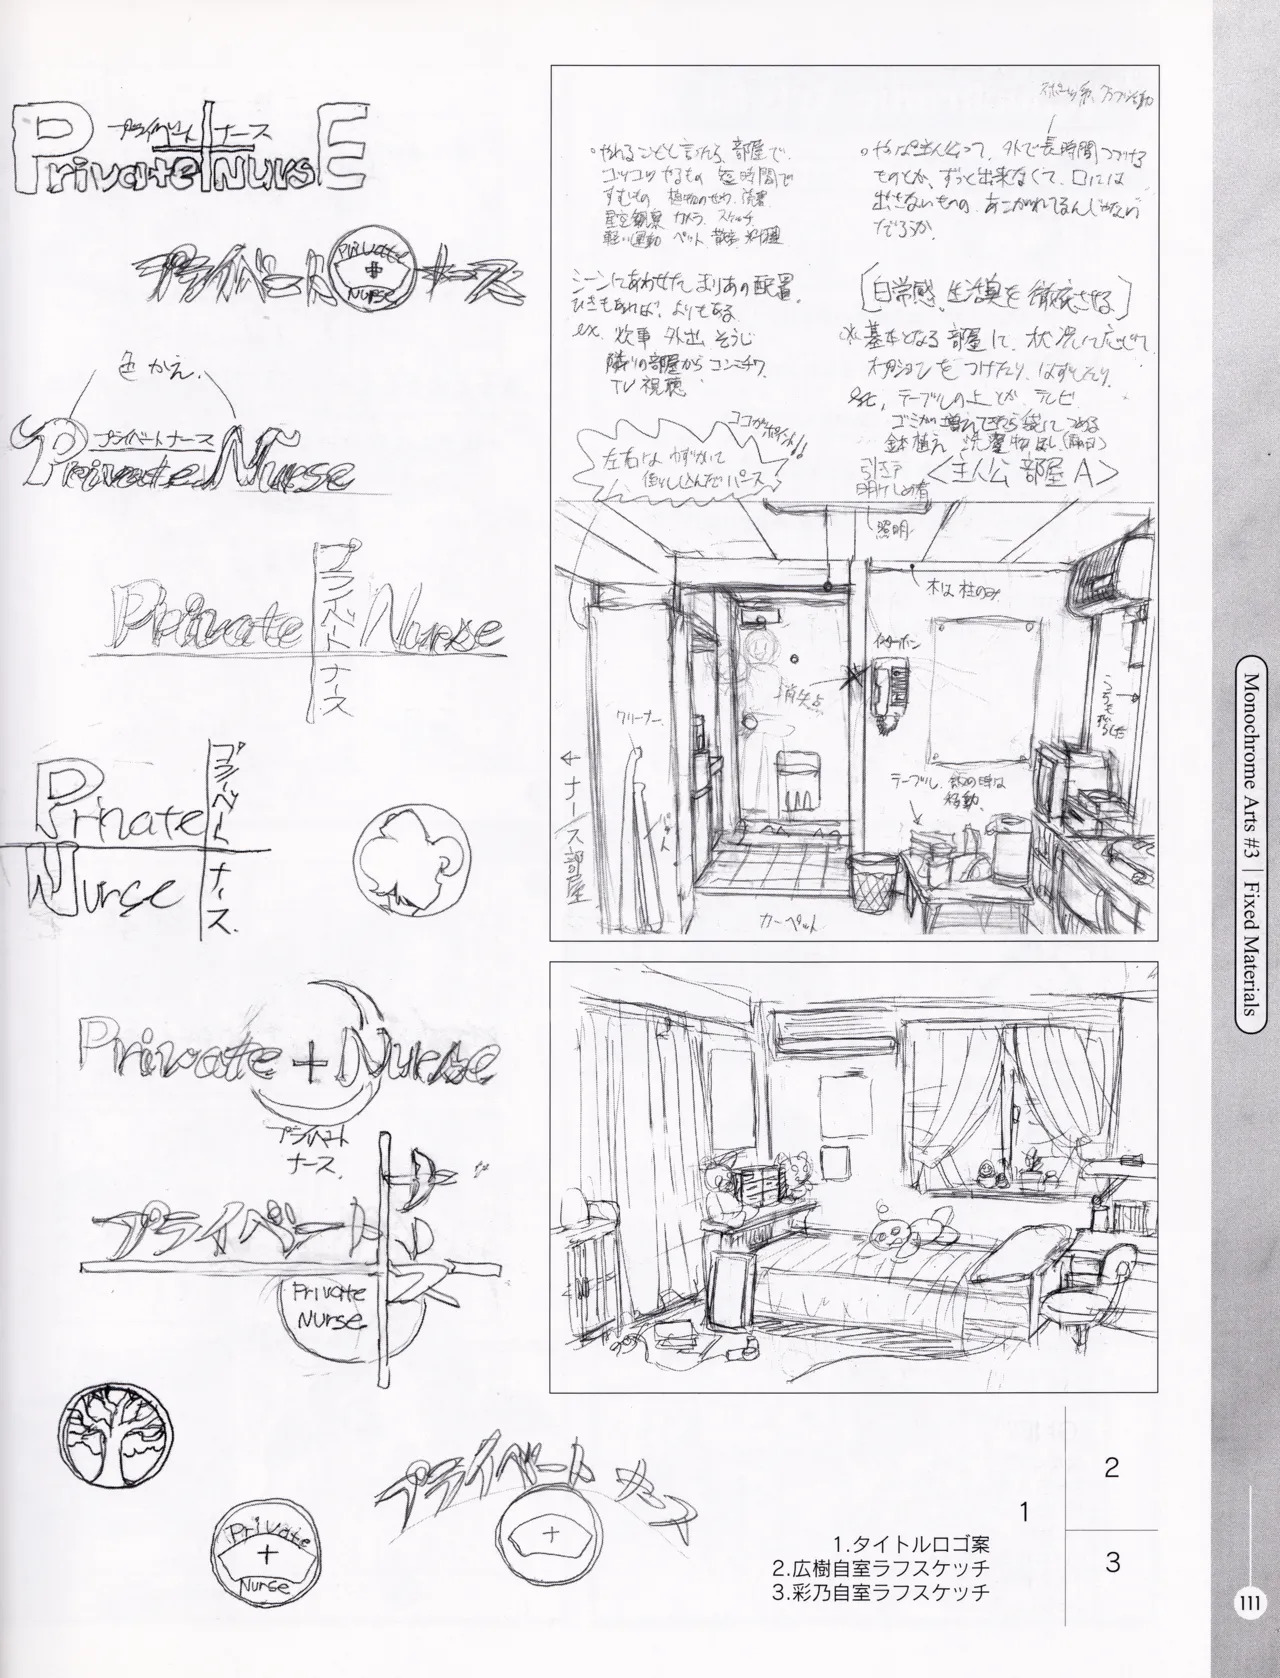 プライベート ナース
Private Nurse
プライベート ナース
Private
Nurse
色かえ.
プライベートナース
Private Nurse
プライベート ナース
Private Nurse
プライベート ナース.
Private
Nurse
Private + Nurse
プライベート
ナース.
プライベート ナース
Private
Nurse
Private
Nurse
プライベート ナース
スポーツ系、クラブ活動
すすむもの
星空観察 カメラ. スケッチ.
軽い運動 ペット 散歩 料理
外で長時間つづける
ものとか、ずっと出来なくて、口には
出せないものの、あこがれてるんじゃない
だろうか.
シーンにあわせた、まりあの配置.
ひきもあれば、よりもある
ex. 炊事 外出 そうじ
隣りの部屋から コンニチワ.
TV視聴
[日常感、生活臭を徹底させる]
※基本となる部屋に、状況に応じて
オプションをつけたり、はずしたり.
テーブルの上とか テレビ.
ゴミが増えてきたら袋につめる
鉢植え 洗濯物ほし
ココがポイント!!
左右はゆずかて
引き戸
<主人公 部屋 A>
照明
木は柱のみ
インターホン
消失点
クリーナー
←ナース部屋
テーブル、
移動.
カーペット
1.タイトルロゴ案
2.広樹自室ラフスケッチ
3.彩乃自室ラフスケッチ
1
2
3
Monochrome Arts #3 | Fixed Materials
111